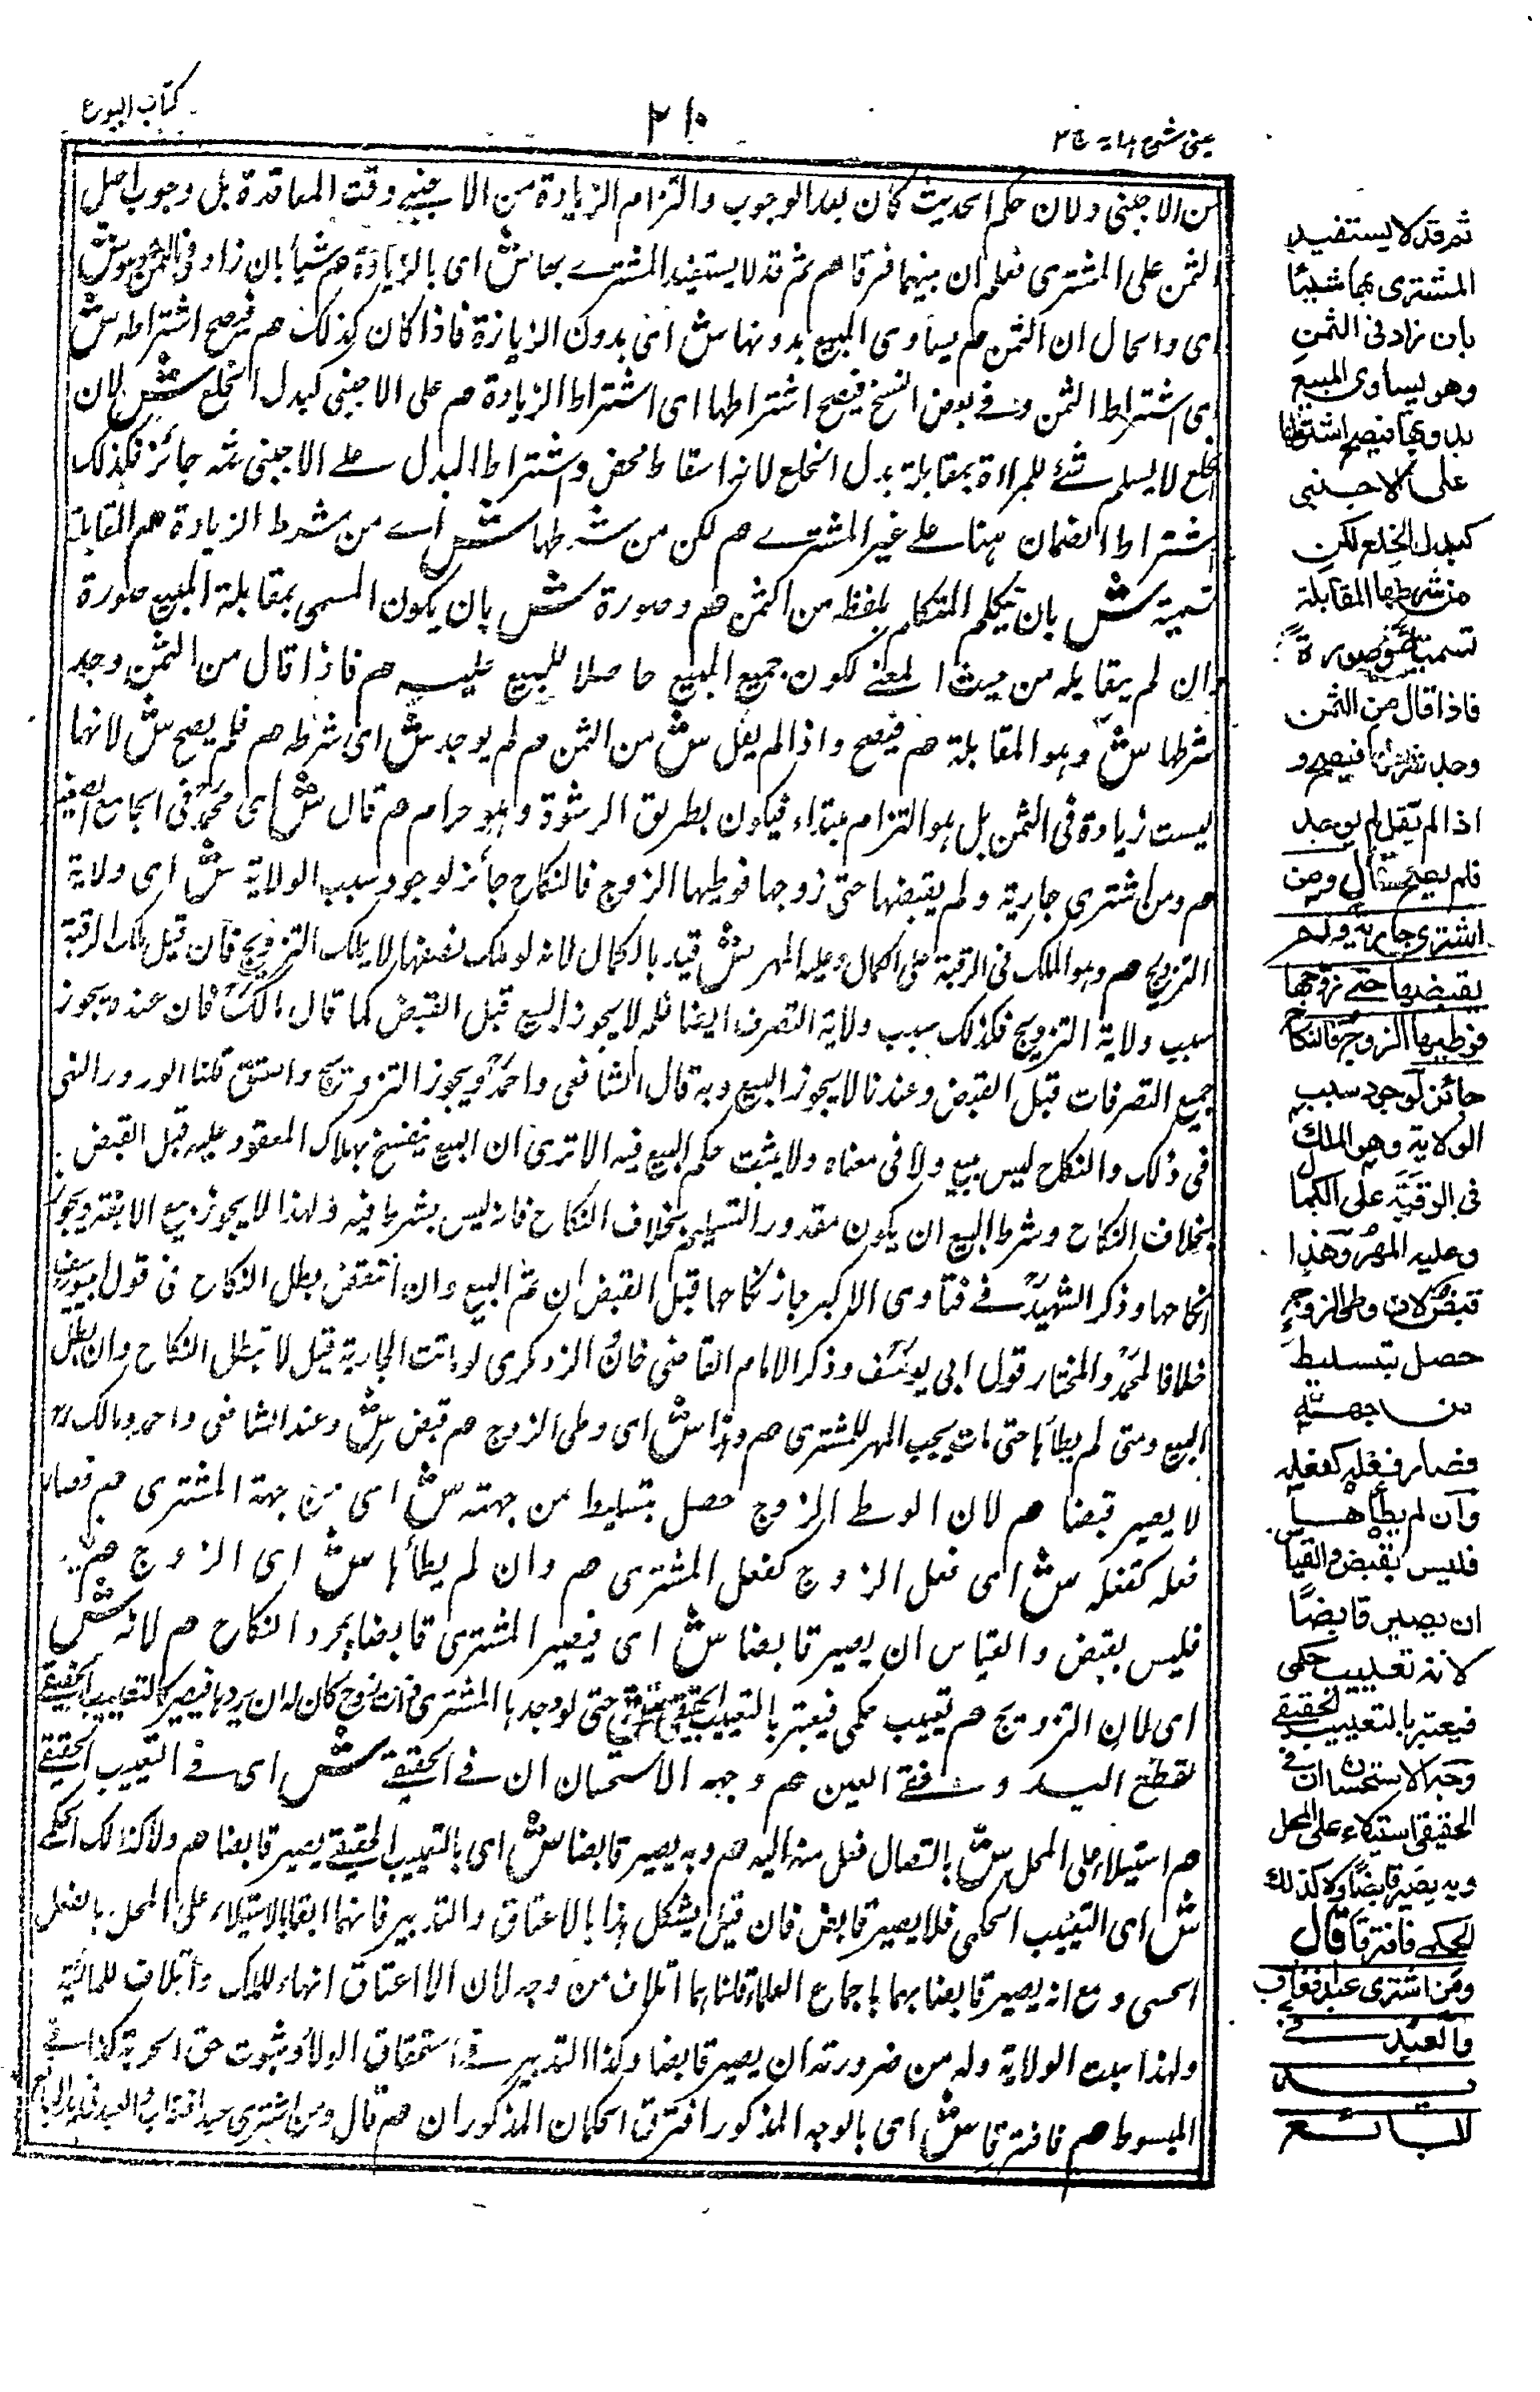 كتاب البيوع
٢١٠
عينى شرح هداية ج ٣
من الاجنبى ولان حكم الحديث كان بعد الوجوب والتزام الزيادة من الاجنبى وقت المعاقدة بل وجوب اصل
الثمن على المشترى فعلم ان بينهما فرقا هم ثم قد لا يستفيد المشترى بها ش اى بالزيادة هم شيأ بان زاد فى الثمن وهو ش
اى والحال ان الثمن هم يساوى المبيع بدونها ش اى بدون الزيادة فاذا كان كذلك هم فيصح اشتراطه ش
اى اشتراط الثمن وفى بعض النسخ فيصح اشتراطها اى اشتراط الزيادة هم على الاجنبى كبدل الخلع ش لان
الخلع لا يسلم شئ للمرأة بمقابلة بدل الخلع لانه اسقاط محض واشتراط البدل على الاجنبى ثمه جائز فكذلك
اشتراط الضمان هنا على غير المشترى هم لكن من شرطها ش اى من شرط الزيادة هم المقابلة
تسمية ش بان يتكلم المتكلم بلفظ من الثمن هم وصورة ش بان يكون المسمى بمقابلة المبيع صورة
وان لم يقابله من حيث المعنى لكون جميع المبيع حاصلا للبيع عليه هم فاذا قال من الثمن وجد
شرطها ش وهو المقابلة هم فيصح واذا لم يقل ش من الثمن هم لم يوجد ش اى شرطه هم فلم يصح ش لانها
ليست زيادة فى الثمن بل هو التزام مبتداء فيكون بطريق الرشوة وهو حرام هم قال ش اى محمد فى الجامع الصغير
هم ومن اشترى جارية ولم يقبضها حتى زوجها فوطيها الزوج فالنكاح جائز لوجود سبب الولاية ش اى ولاية
التزويج هم وهو الملك فى الرقبة على الكمال وعليه المهر ش قيد بالكمال لانه لو ملك نصفها لا يملك التزويج فان قيل ملك الرقبة
سبب ولاية التزويج فكذلك سبب ولاية التصرف ايضا فلم لا يجوز البيع قبل القبض كما قال مالك فان عنده يجوز
جميع التصرفات قبل القبض وعندنا لا يجوز البيع وبه قال الشافعى واحمد ويجوز التزويج والعتق قلنا الورود النهى
فى ذلك والنكاح ليس ببيع ولا فى معناه ولا يثبت حكم البيع فيه الا ترى ان البيع ينفسخ بهلاك المعقود عليه قبل القبض
بخلاف النكاح وشرط البيع ان يكون مقدور التسليم بخلاف النكاح فانه ليس بشرط فيه ولهذا لا يجوز بيع الابقة ويجوز
انكاحها وذكر الشهيد فى فتاوى الاكبر جاز نكاحها قبل القبض ان تم البيع وان انتقض بطل النكاح فى قول ابى يوسف
خلافا لمحمد والمختار قول ابى يوسف وذكر الامام القاضى خان لو ماتت الجارية قيل لا تبطل النكاح وان بطل
البيع ومتى لم يطأها حتى مات يجب المهر للمشترى هم وهذا ش اى وطى الزوج هم قبض ش وعند الشافعى واحمد ومالك
لا يصير قبضا هم لان الوطى الزوج حصل بتسليط من جهته ش اى من جهة المشترى هم فصار
فعله كفعله ش اى فعل الزوج كفعل المشترى هم وان لم يطأها ش اى الزوج هم
فليس بقبض والقياس ان يصير قابضا ش اى فيصير المشترى قابضا بمجرد النكاح هم لانه ش
اى لان التزويج هم تعييب حكمى فيعتبر بالتعييب الحقيقى ش حتى لو وجدها المشترى ذات زوج كان له ان يردها فيصير كالتعييب الحقيقى
لقطع اليد وفقئ العين هم وجه الاستحسان ان فى الحقيقى ش اى فى التعييب الحقيقى
هم استيلاء على المحل ش باتصال فعل منه اليه هم وبه يصير قابضا ش اى بالتعييب الحقيقى يصير قابضا هم ولا كذلك الحكمى
ش اى التعييب الحكمى فلا يصير قابض فان قيل يشكل هذا بالاعتاق والتدبير فانهما بالاستيلاء على المحل بالفعل
الحسى ومع انه يصير قابضا بهما باجماع العلماء قلنا بهما اتلاف من وجه لان الاعتاق انهاء للملك واتلاف للمالية
ولهذا يثبت الولاية وله من ضرورته ان يصير قابضا وكذا التدبير فى استحقاق الولاء وثبوت حق الحرية كذا فى
المبسوط هم فافترقا ش اى بالوجه المذكور افترق الحكمان المذكوران هم قال ومن اشترى عبدا فغاب والعبد فى يد البائع
ثم قد لا يستفيد
المشترى بها شيئا
بان زاد فى الثمن
وهو يساوى المبيع
بدونها فيصح اشتراطها
على الاجنبى
كبدل الخلع لكن
من شرطها المقابلة
تسمية وصورة
فاذا قال من الثمن
وجد شرطها فيصح و
اذا لم يقل لم يوجد
فلم يصح قال ومن
اشترى جارية ولم
يقبضها حتى زوجها
فوطيها الزوج فالنكاح
جائز لوجود سبب
الولاية وهو الملك
فى الرقبة على الكمال
وعليه المهر وهذا
قبض لان وطى الزوج
حصل بتسليط
من جهته
فصار فعله كفعله
وان لم يطأها
فليس بقبض والقياس
ان يصير قابضا
لانه تعييب حكمى
فيعتبر بالتعييب الحقيقى
وجه الاستحسان ان فى
الحقيقى استيلاء على المحل
وبه يصير قابضا ولا كذلك
الحكمى فافترقا قال
ومن اشترى عبدا فغاب
والعبد فى
يد
البائع